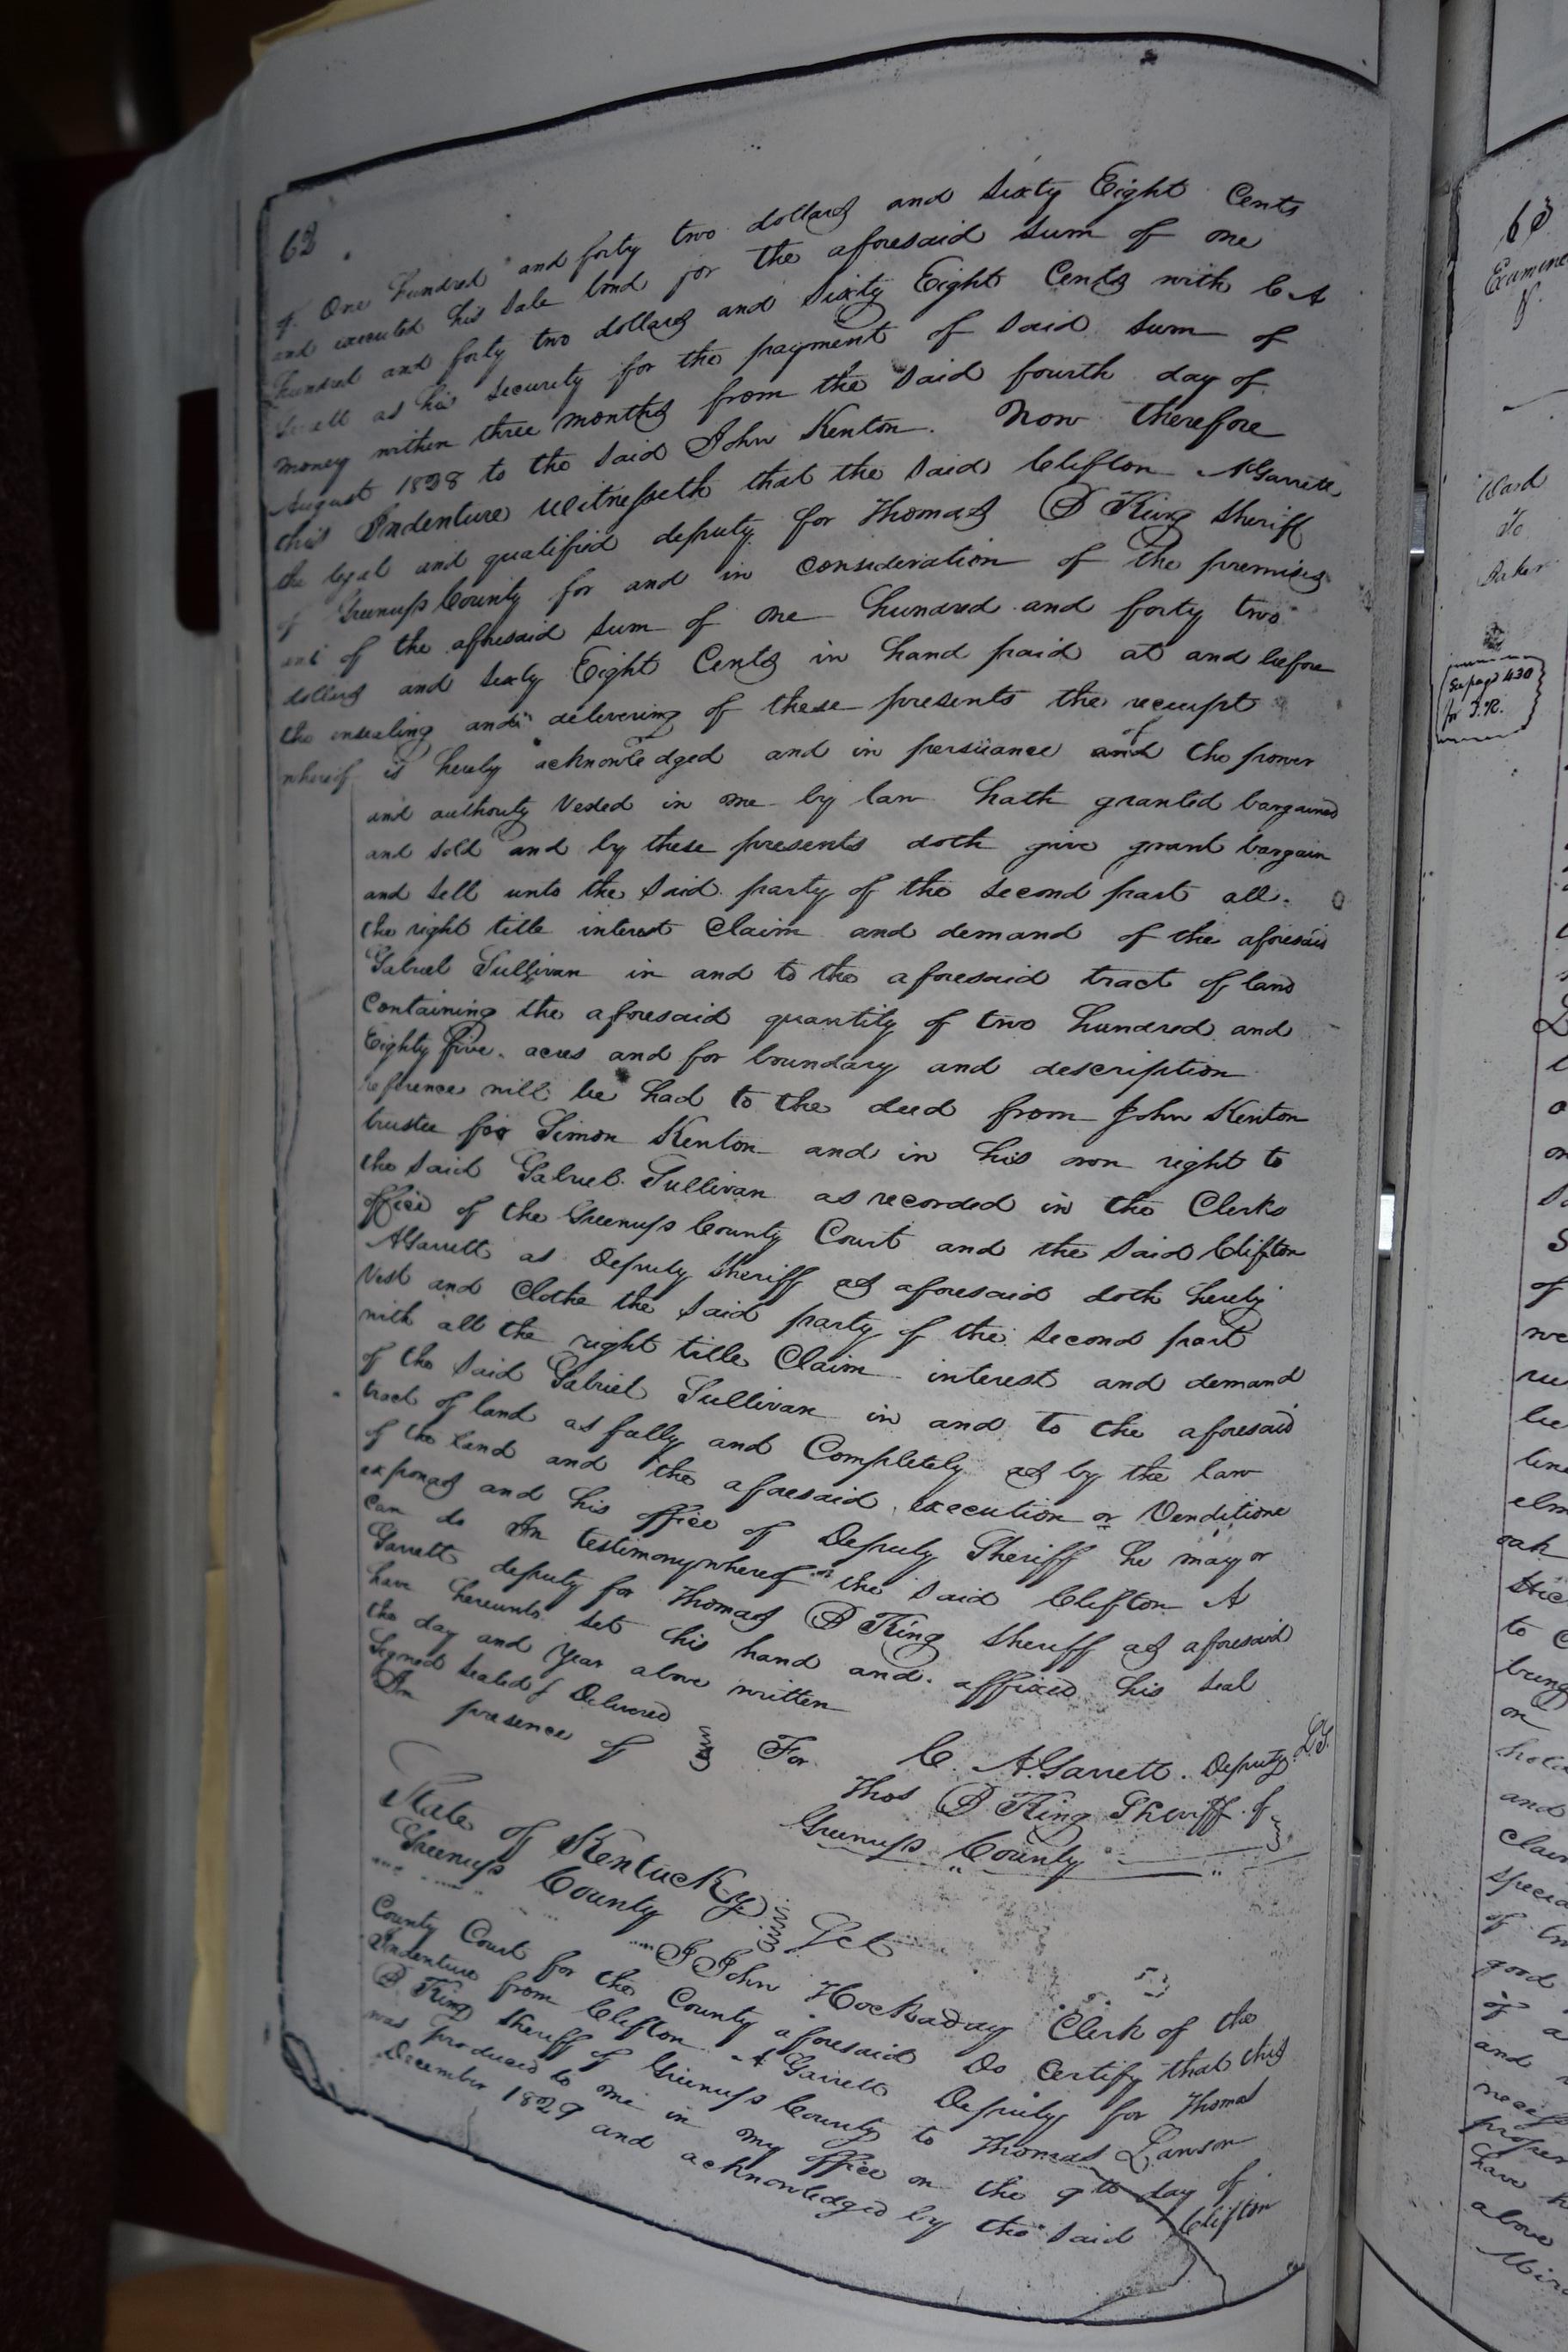 62
of One hundred and forty two dollars and Sixty Eight Cents
and executed his Sale bond for the aforesaid Sum of one
hundred and forty two dollars and Sixty Eight Cents with C A
as his Security for the payment of Said Sum of
money within three months from the Said fourth day of
August 1828 to the Said John Kenton. Now therefore
this Indenture Witnesseth that the Said Clifton A Garrett
the legal and qualified deputy for Thomas B King Sheriff
of Greenup County for and in consideration of the premises
and of the aforesaid Sum of one hundred and forty two
dollars and Sixty Eight Cents in hand paid at and before
the ensealing and delivering of these presents the receipt
whereof is hereby acknowledged and in persuance and of the power
and authority Vested in me by law hath granted bargained
and Sold and by these presents doth give grant bargain
and Sell unto the Said party of the Second part all
the right title interest Claim and demand of the aforesaid
Gabriel Sullivan in and to the aforesaid tract of land
Containing the aforesaid quantity of two hundred and
Eighty five acres and for boundary and description
reference will be had to the deed from John Kenton
trustee for Simon Kenton and in his own right to
the Said Gabriel Sullivan as recorded in the Clerks
office of the Greenup County Court and the Said Clifton
A Garrett as Deputy Sheriff as aforesaid doth hereby
Vest and Clothe the Said party of the Second part
with all the right title Claim interest and demand
of the Said Gabriel Sullivan in and to the aforesaid
tract of land as fully and Completely as by the law
of the land and the aforesaid execution or Venditione
exponas and his office of Deputy Sheriff he may or
can do In testimony whereof the Said Clifton A
Garrett deputy for Thomas B King Sheriff as aforesaid
have hereunto Set his hand and affixed his Seal
the day and Year above written
Signed Sealed & Delivered
In presence of
C. A. Garrett. Deputy L.S.
For Thos B King Sheriff of
Greenup County
State of Kentucky
Greenup County Sct
I John Hockaday Clerk of the
County Court for the County aforesaid Do Certify that this
Indenture from Clifton A Garrett Deputy for Thomas
B. King Sheriff of Greenup County to Thomas Lawson
was produced to me in my office on the 9th day of
December 1829 and acknowledged by the Said Clifton
63
Examined
Ward
To
Baker
See page 430
for P.R.
of
to
being
on
and
Claim
good
of a
and
have
above